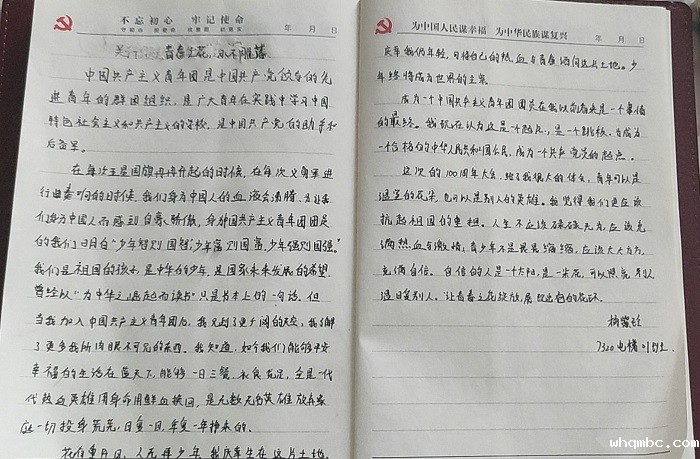 不忘初心 牢记使命
守初心 担使命 找差距 抓落实
年 月 日
青春之花,永不凋落
中国共产主义青年团是中国共产党领导的先
进青年的群团组织,是广大青年在实践中学习中国
特色社会主义和共产主义的学校,是中国共产党的助手和
后备军。
在每次五星国旗冉冉升起的时候,在每次义勇军进
行曲奏响的时候,我们身为中国人的血液会沸腾,为让我
们身为中国人而感到自豪骄傲,身为中国共产主义青年团团员
的我们明白“少年智则国智,少年富则国富,少年强则国强。”
我们是祖国的孩子,是中华的少年,是国家未来发展的希望
曾经以“为中华之崛起而读书”只是书本上的一句话。但
当我加入中国共产主义青年团后,我见到了更大阔的天空,我了解
了更多我所肉眼不可见的东西。我知道,如今我们能够平安
幸福的生活在蓝天下,能够一日三餐、衣食充足,全是一代
代热血英雄用身命用鲜血换回,是无数无名英雄放弃家
庭一切投身荒芜,日复一日,年复一年换来的。
花有重开日,人无再少年,我庆幸生在这片土地,
为中国人民谋幸福 为中华民族谋复兴
年 月 日
庆幸我仍年轻,可将自己的热血与青春洒向这片土地。少
年终将成为世界的主宰。
成为一个中国共产主义青年团团员在我以前看来是一个事情
的最终。我现在认为这是一个起点,是一个跳板,为成为
一个合格的中华人民共和国公民,成为一个共产党党员的起点。
这次的100周年大会,给了我很大的体会,青年可以是
温室的花朵,也可以是别人的英雄。我觉得我们更应该
扛起祖国的重担。人生不应该碌碌无为,应该充
满热血与激情,青少年不是畏畏缩缩,应该大大方方,
充满自信。自信的人是一个太阳,是一朵花,可以照亮
温暖别人,让青春之花绽放属
7320电梯